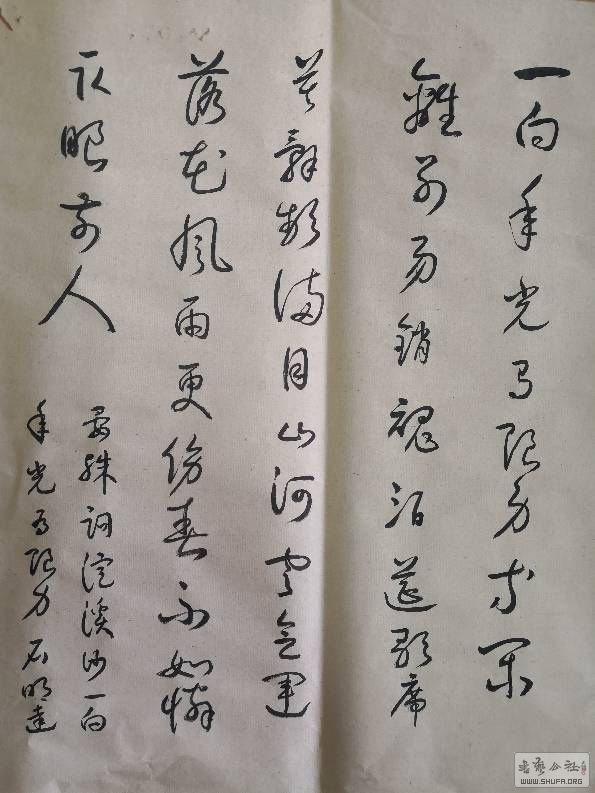 一向年光有限身等闲
離别易銷魂酒筵歌席
莫辭频满目山河空念遠
落花風雨更傷春不如憐
取眼前人
晏殊詞浣溪沙一向
年光有限身石明達
书艺公社
WWW.SHUFA.ORG